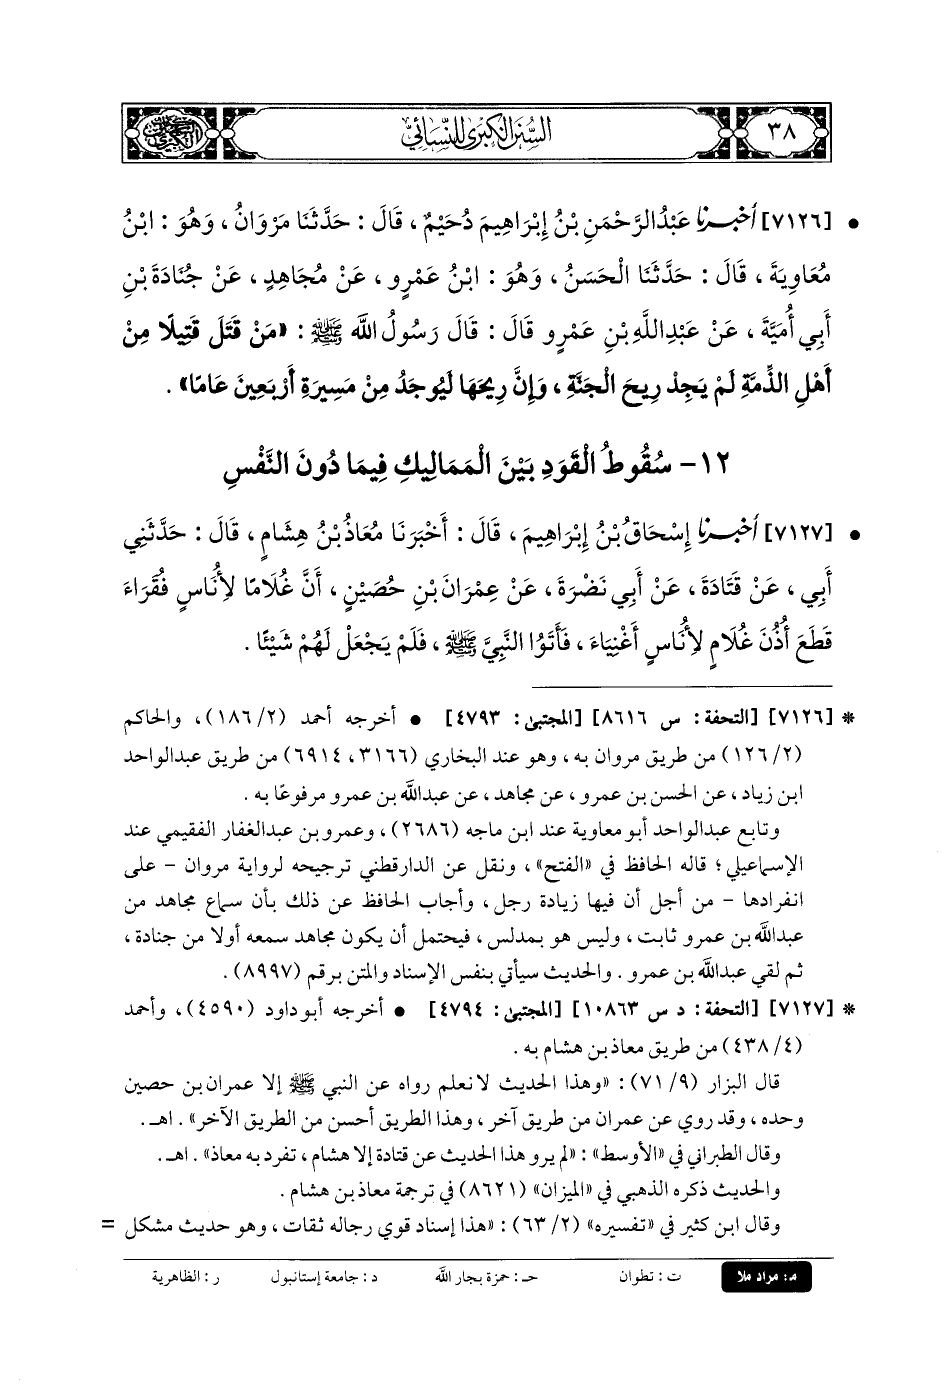 ٣٨
السنن الكبرى للنسائي
• [٧١٢٦] أخبرنا عَبْدُ الرَّحْمَنِ بْنُ إِبْرَاهِيمَ دُحَيْمٌ، قَالَ: حَدَّثَنَا مَرْوَانُ، وَهُوَ: ابْنُ
مُعَاوِيَةَ، قَالَ: حَدَّثَنَا الْحَسَنُ، وَهُوَ: ابْنُ عَمْرٍو، عَنْ مُجَاهِدٍ، عَنْ جُنَادَةَ بْنِ
أَبِي أُمَيَّةَ، عَنْ عَبْدِ اللَّهِ بْنِ عَمْرٍو قَالَ: قَالَ رَسُولُ اللَّهِ ﷺ: «مَنْ قَتَلَ قَتِيلًا مِنْ
أَهْلِ الذِّمَّةِ لَمْ يَجِدْ رِيحَ الْجَنَّةِ، وَإِنَّ رِيحَهَا لَيُوجَدُ مِنْ مَسِيرَةِ أَرْبَعِينَ عَامًا».
١٢- سُقُوطُ الْقَوَدِ بَيْنَ الْمَمَالِيكِ فِيمَا دُونَ النَّفْسِ
• [٧١٢٧] أخبرنا إِسْحَاقُ بْنُ إِبْرَاهِيمَ، قَالَ: أَخْبَرَنَا مُعَاذُ بْنُ هِشَامٍ، قَالَ: حَدَّثَنِي
أَبِي، عَنْ قَتَادَةَ، عَنْ أَبِي نَضْرَةَ، عَنْ عِمْرَانَ بْنِ حُصَيْنٍ، أَنَّ غُلَامًا لِأُنَاسٍ فُقَرَاءَ
قَطَعَ أُذُنَ غُلَامٍ لِأُنَاسٍ أَغْنِيَاءَ، فَأَتَوُا النَّبِيَّ ﷺ، فَلَمْ يَجْعَلْ لَهُمْ شَيْئًا.
* [٧١٢٦] [التحفة: س ٨٦١٦] [المجتبى: ٤٧٩٣] • أخرجه أحمد (٢/ ١٨٦)، والحاكم
(٢/ ١٢٦) من طريق مروان به، وهو عند البخاري (٣١٦٦، ٦٩١٤) من طريق عبدالواحد
ابن زياد، عن الحسن بن عمرو، عن مجاهد، عن عبدالله بن عمرو مرفوعًا به.
وتابع عبدالواحد أبو معاوية عند ابن ماجه (٢٦٨٦)، وعمرو بن عبدالغفار الفقيمي عند
الإسماعيلي؛ قاله الحافظ في «الفتح»، ونقل عن الدارقطني ترجيحه لرواية مروان - على
انفرادها - من أجل أن فيها زيادة رجل، وأجاب الحافظ عن ذلك بأن سماع مجاهد من
عبدالله بن عمرو ثابت، وليس هو بمدلس، فيحتمل أن يكون مجاهد سمعه أولا من جنادة،
ثم لقي عبدالله بن عمرو. والحديث سيأتي بنفس الإسناد والمتن برقم (٨٩٩٧).
* [٧١٢٧] [التحفة: د س ١٠٨٦٣] [المجتبى: ٤٧٩٤] • أخرجه أبو داود (٤٥٩٠)، وأحمد
(٤/ ٤٣٨) من طريق معاذ بن هشام به.
قال البزار (٩/ ٧١): «وهذا الحديث لا نعلم رواه عن النبي ﷺ إلا عمران بن حصين
وحده، وقد روي عن عمران من طريق آخر، وهذا الطريق أحسن من الطريق الآخر». اهـ.
وقال الطبراني في «الأوسط»: «لم يرو هذا الحديث عن قتادة إلا هشام، تفرد به معاذ». اهـ.
والحديث ذكره الذهبي في «الميزان» (٨٦٢١) في ترجمة معاذ بن هشام.
وقال ابن كثير في «تفسيره» (٢/ ٦٣): «هذا إسناد قوي رجاله ثقات، وهو حديث مشكل =
م: مراد ملا ت: تطوان حـ: حمزة بجار الله د: جامعة إستانبول ر: الظاهرية